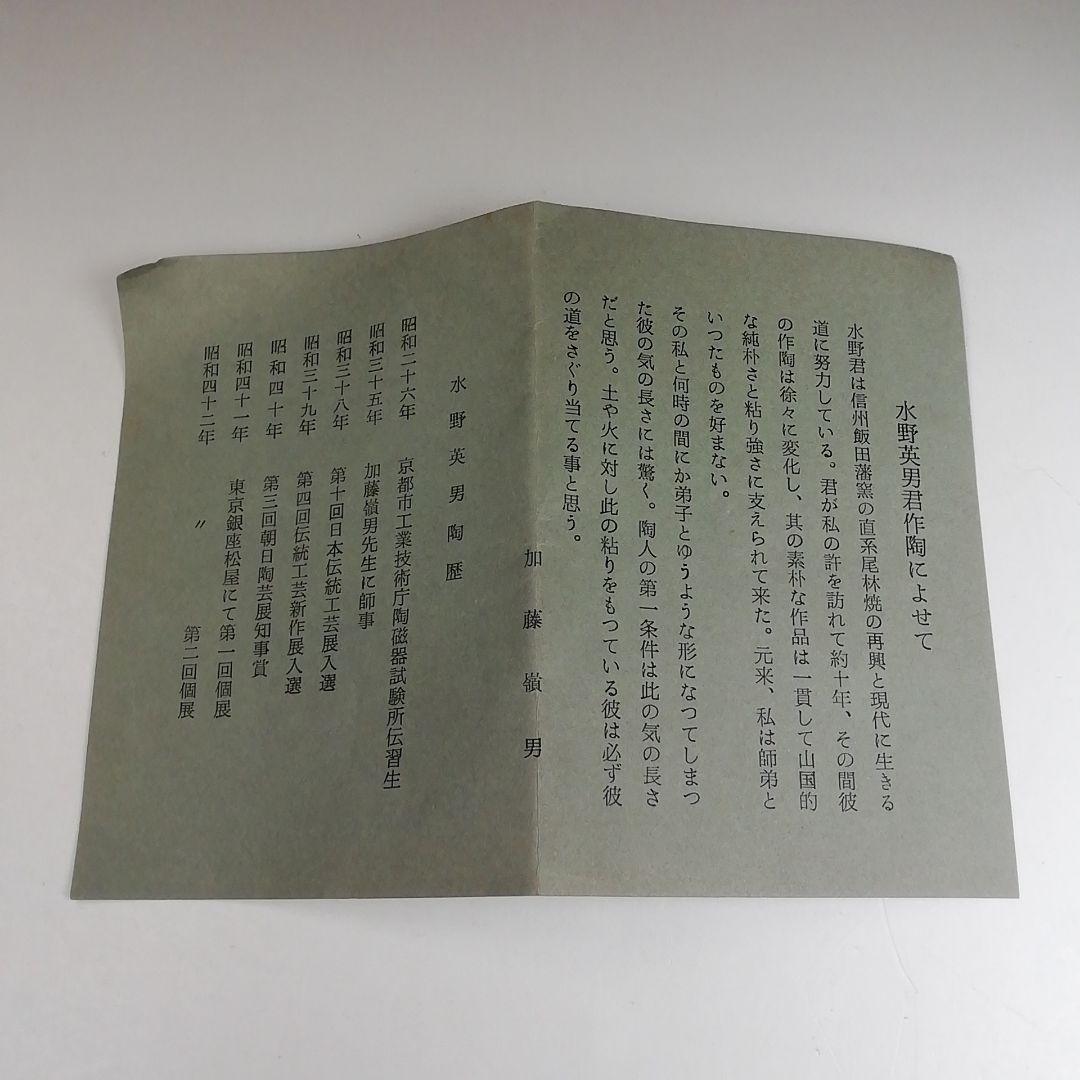 水野英男君作陶によせて
水野君は信州飯田藩窯の直系尾林焼の再興と現代に生きる
道に努力している。君が私の許を訪れて約十年、その間彼
の作陶は徐々に変化し、其の素朴な作品は一貫して山国的
な純朴さと粘り強さに支えられて来た。元来、私は師弟と
いつたものを好まない。
その私と何時の間にか弟子とゆうような形になつてしまつ
た彼の気の長さには驚く。陶人の第一条件は此の気の長さ
だと思う。土や火に対し此の粘りをもつている彼は必ず彼
の道をさぐり当てる事と思う。
加藤嶺男
水野英男陶歴
昭和二十六年 京都市工業技術庁陶磁器試験所伝習生
昭和三十五年 加藤嶺男先生に師事
昭和三十八年 第十回日本伝統工芸展入選
昭和三十九年 第四回伝統工芸新作展入選
昭和四十年 第三回朝日陶芸展知事賞
昭和四十一年 東京銀座松屋にて第一回個展
昭和四十二年 〃 第二回個展